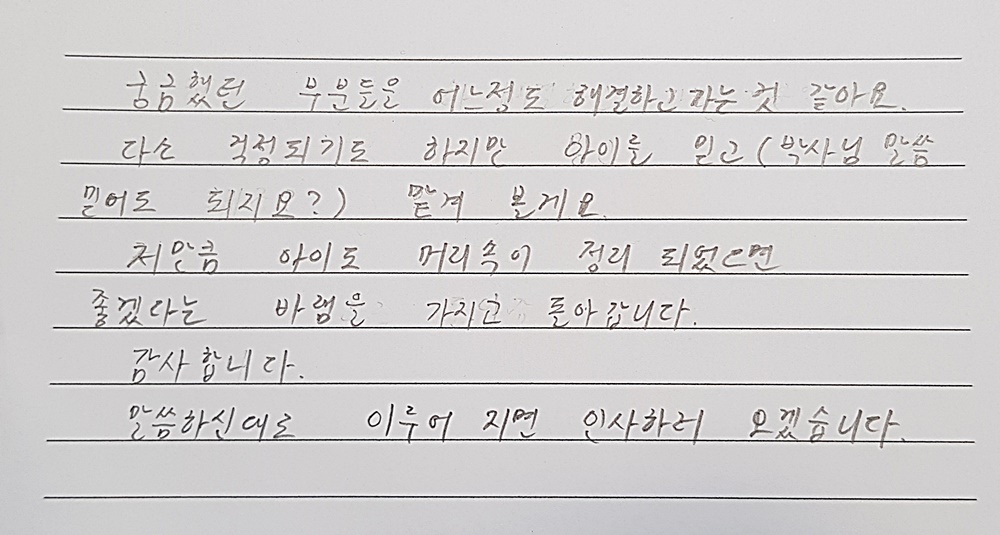 궁금했던 부분들을 어느정도 해결하고 가는 것 같아요.
다소 걱정되기도 하지만 아이를 믿고 (박사님 말씀
믿어도 되지요?) 맡겨 볼게요.
저만큼 아이도 머리속이 정리 되었으면
좋겠다는 바램을 가지고 돌아갑니다.
감사합니다.
말씀하신대로 이루어 지면 인사하러 오겠습니다.